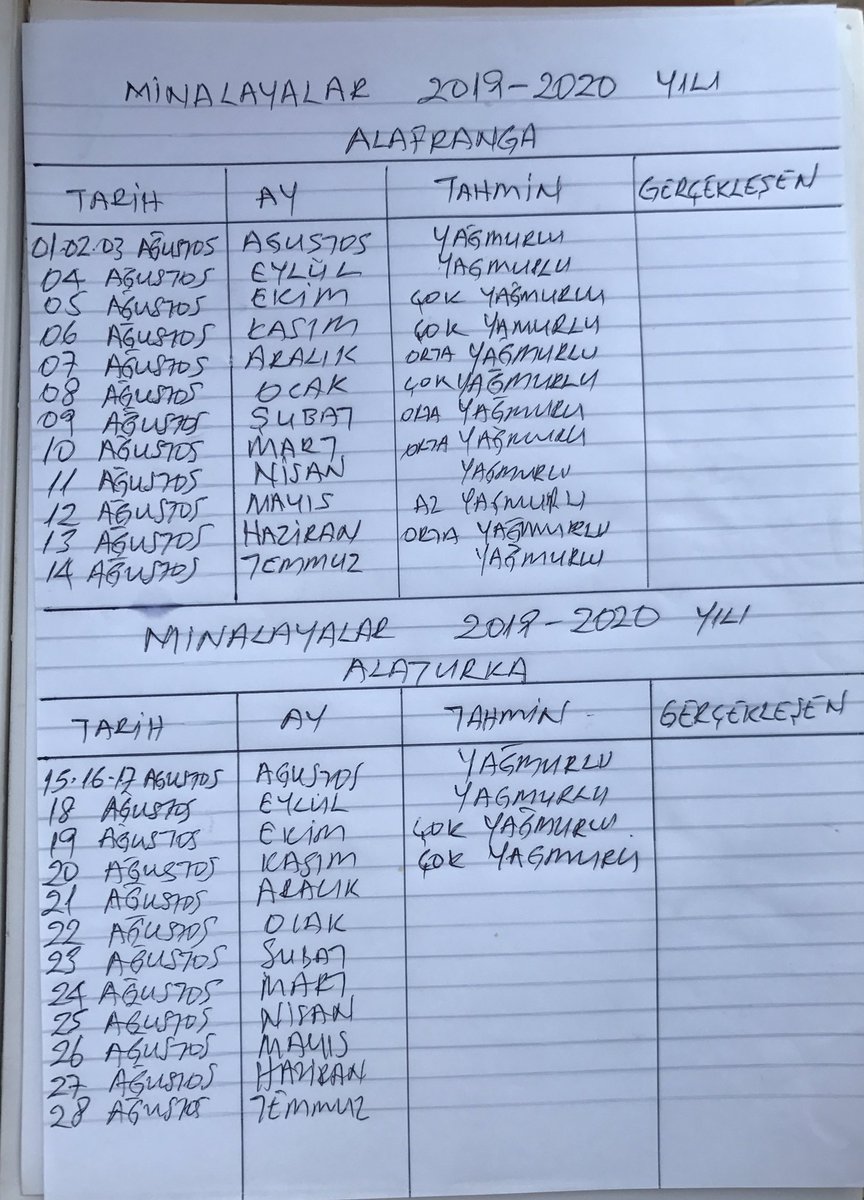 MİNALAYALAR 2019-2020 YILI
ALAFRANGA
TARİH AY TAHMİN GERÇEKLEŞEN
01.02.03 AĞUSTOS AĞUSTOS YAĞMURLU
04 AĞUSTOS EYLÜL YAĞMURLU
05 AĞUSTOS EKİM ÇOK YAĞMURLU
06 AĞUSTOS KASIM ÇOK YAMURLU
07 AĞUSTOS ARALIK ORTA YAĞMURLU
08 AĞUSTOS OCAK ÇOK YAĞMURLU
09 AĞUSTOS ŞUBAT ORTA YAĞMURLU
10 AĞUSTOS MART ORTA YAĞMURLU
11 AĞUSTOS NİSAN YAĞMURLU
12 AĞUSTOS MAYIS AZ YAĞMURLU
13 AĞUSTOS HAZİRAN ORTA YAĞMURLU
14 AĞUSTOS TEMMUZ YAĞMURLU
MİNALAYALAR 2019-2020 YILI
ALATURKA
TARİH AY TAHMİN GERÇEKLEŞEN
15.16.17 AĞUSTOS AĞUSTOS YAĞMURLU
18 AĞUSTOS EYLÜL YAĞMURLU
19 AĞUSTOS EKİM ÇOK YAĞMURLU
20 AĞUSTOS KASIM ÇOK YAĞMURLU
21 AĞUSTOS ARALIK
22 AĞUSTOS OCAK
23 AĞUSTOS ŞUBAT
24 AĞUSTOS MART
25 AĞUSTOS NİSAN
26 AĞUSTOS MAYIS
27 AĞUSTOS HAZİRAN
28 AĞUSTOS TEMMUZ